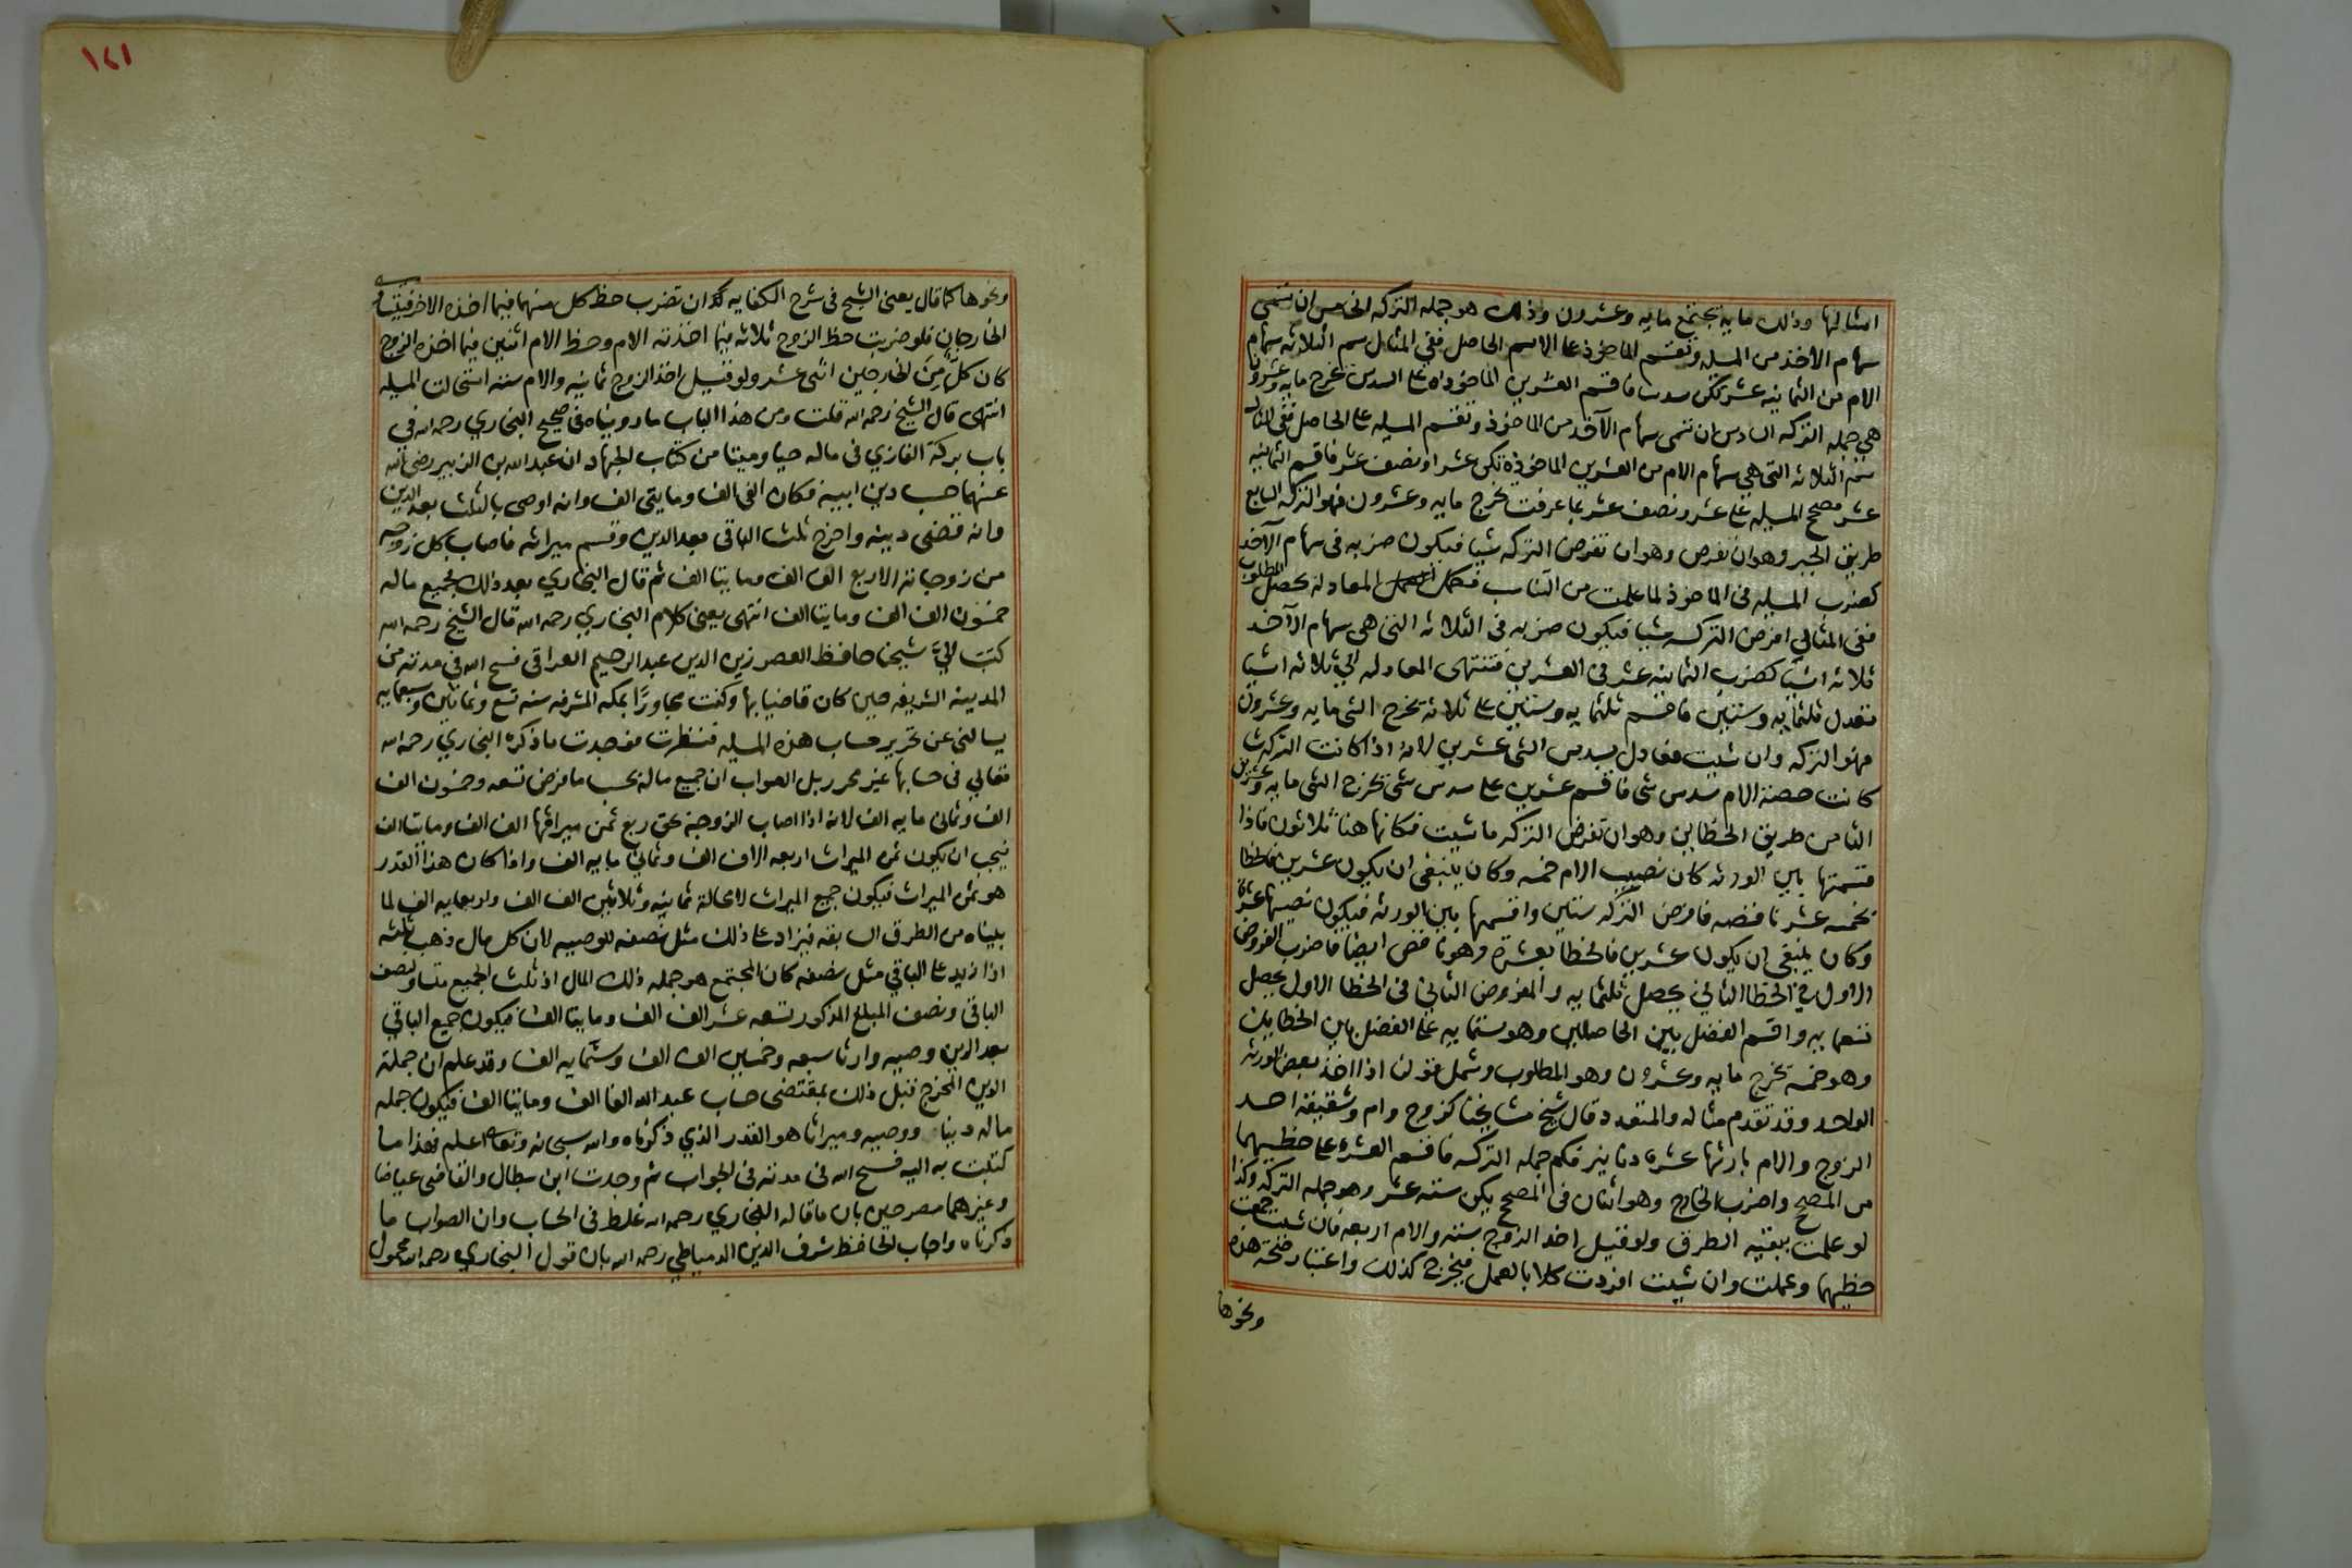 امثالها وذلك مايه يجتمع مايه وعشرون وذلك هو جمله التركه الخامس ان تسمى
سهام الاخذ من المسيله وتقسم الماخوذ على الاسم الحاصل ففى المثال سم الثلاثه سهام
الام من الثمانيه عشر تكن سدسا فاقسم العشرين الماخوذه على السدس تخرج مايه وعشرون
هي جمله التركه السادس ان تسمى سهام الآخذ من الماخوذ وتقسم المسيله على الحاصل ففى المثال
سم الثلاثه التى هي سهام الام من العشرين الماخوذه تكن عشرا ونصف عشر فاقسم الثمانيه
عشر مصحح المسيله على عشر ونصف عشر بما عرفت تخرج مايه وعشرون فهو التركه السابع
طريق الجبر وهو ان تفرض وهو ان تفرض التركه شيا فيكون ضربه فى سهام الآخذ
كضرب المسيله فى الماخوذ لما علمت من التناسب فكمل العمل المعادله يحصل المطلوب
ففى المثالي افرض التركه شيا فيكون ضربه فى الثلاثه التى هي سهام الآخذ
ثلاثه اشيا كضرب الثمانيه عشر فى العشرين فتنتهى المعادله الي ثلاثه اشيا
تعدل ثلثمايه وستين فاقسم ثلثمايه وستين على ثلاثه تخرج الشى مايه وعشرون
فهو التركه وان شيت فعادل بسدس الشى عشرين لانه اذا كانت التركه شيا
كانت حصة الام سدس شى فاقسم عشرين على سدس شى تخرج الشى مايه وعشرين
الثامن طريق الخطاين وهو ان تفرض التركه ما شيت فكانها هنا ثلاثون فاذا
قسمتها بين الورثه كان نصيب الام خمسه وكان ينبغى ان يكون عشرين فالخطا
بخمسه عشر ناقصه فافرض التركه ستين واقسمها بين الورثه فيكون نصيبها عشرة
وكان ينبغى ان يكون عشرين فالخطا بعشره وهو ناقص ايضا فاضرب المفروض
الاول في الخطا الثاني يحصل ثلثمايه والمفروض الثاني فى الخطا الاول يحصل
تسعمايه واقسم الفضل بين الحاصلين وهو ستمايه على الفضل بين الخطاين
وهو خمسه تخرج مايه وعشرون وهو المطلوب وشمل قولنا اذا اخذ بعض الورثه
الواحد وقد تقدم مثاله والمتعدد قال شيخ مشايخنا كزوج وام وشقيقه اخذ
الزوج والام بارثها عشره دنانير فكم جمله التركه فاقسم العشره على حظيهما
من المصحح واضرب الخارج وهو اثنان فى المصحح يكن سته عشر وهو جمله التركه وكذا
لو علمت ببقيه الطرق ولو قيل اخذ الزوج سته والام اربعه فان شيت جمعت
حظيهما وعملت وان شيت افردت كلا بالعمل فيخرج كذلك واعتبار صحة هذه
ونحوها
١٦١
ونحوها كما قال يعنى الشيخ فى شرح الكفايه كذا ان تضرب حظ كل منهما فيما اخذه الاخر فيتساوى
الخارجان فلو ضربت حظ الزوج ثلاثه فيما اخذته الام وحظ الام اثنين فيما اخذه الزوج
كان كل من الخارجين اثنى عشر ولو قيل اخذ الزوج ثمانيه والام سته استحالت المسيله
انتهى قال الشيخ رحمه الله قلت ومن هذا الباب ما رويناه فى صحيح البخاري رحمه الله في
باب بركة الغازي فى ماله حيا وميتا من كتاب الجهاد ان عبد الله بن الزبير رضى الله
عنهما حسب دين ابيه فكان الفى الف ومايتى الف وانه اوصى بالثلث بعد الدين
وانه قضى دينه واخرج ثلث الباقى بعد الدين وقسم ميراثه فاصاب كل زوجه
من زوجاته الاربع الف الف ومايتا الف ثم قال البخاري بعد ذلك فجميع ماله
خمسون الف الف ومايتا الف انتهى يعنى كلام البخاري رحمه الله قال الشيخ رحمه الله
كتب اليَّ شيخنا حافظ العصر زين الدين عبد الرحيم العراقى فسح الله فى مدته من
المدينه الشريفه حين كان قاضيا بها وكنت مجاورًا بمكه المشرفه سنه تسع وثمانين وسبعمايه
يسالنى عن تحرير حساب هذه المسيله فنظرت فوجدت ما ذكره البخاري رحمه الله
تعالي فى حسابها غير محرر بل الصواب ان جميع ماله بحسب ما فرض تسعه وخمسون الف
الف وثمانى مايه الف لانه اذا اصاب الزوجة بحق ربع ثمن ميراثها الف الف ومايتا الف
فيجب ان يكون ثمن الميراث اربعه الاف الف وثماني مايه الف واذا كان هذا القدر
هو ثمن الميراث فيكون جميع الميراث لا محالة ثمانيه وثلاثين الف الف واربعمايه الف لما
بيناه من الطرق السابقه فيزاد على ذلك مثل نصفه للوصيه لان كل مال ذهب ثلثه
اذا زيد على الباقي مثل نصفه كان المجتمع هو جمله ذلك المال اذ ثلث الجميع مساو لنصف
الباقى ونصف المبلغ المذكور تسعه عشر الف الف ومايتا الف فيكون جميع الباقي
بعد الدين وصيه وارثا سبعه وخمسين الف الف وستمايه الف وقد علم ان جملة
الدين المخرج قبل ذلك بمقتضى حساب عبد الله الفا الف ومايتا الف فيكون جمله
ماله دينا ووصيه وميراثا هو القدر الذي ذكرناه والله سبحانه وتعالى اعلم فهذا ما
كتبت به اليه فسح الله فى مدته فى الجواب ثم وجدت ابن بطال والقاضى عياضا
وغيرهما مصرحين بان ما قاله البخاري رحمه الله غلط فى الحساب وان الصواب ما
ذكرناه واجاب الحافظ شرف الدين الدمياطي رحمه الله بان قول البخاري رحمه الله محمول